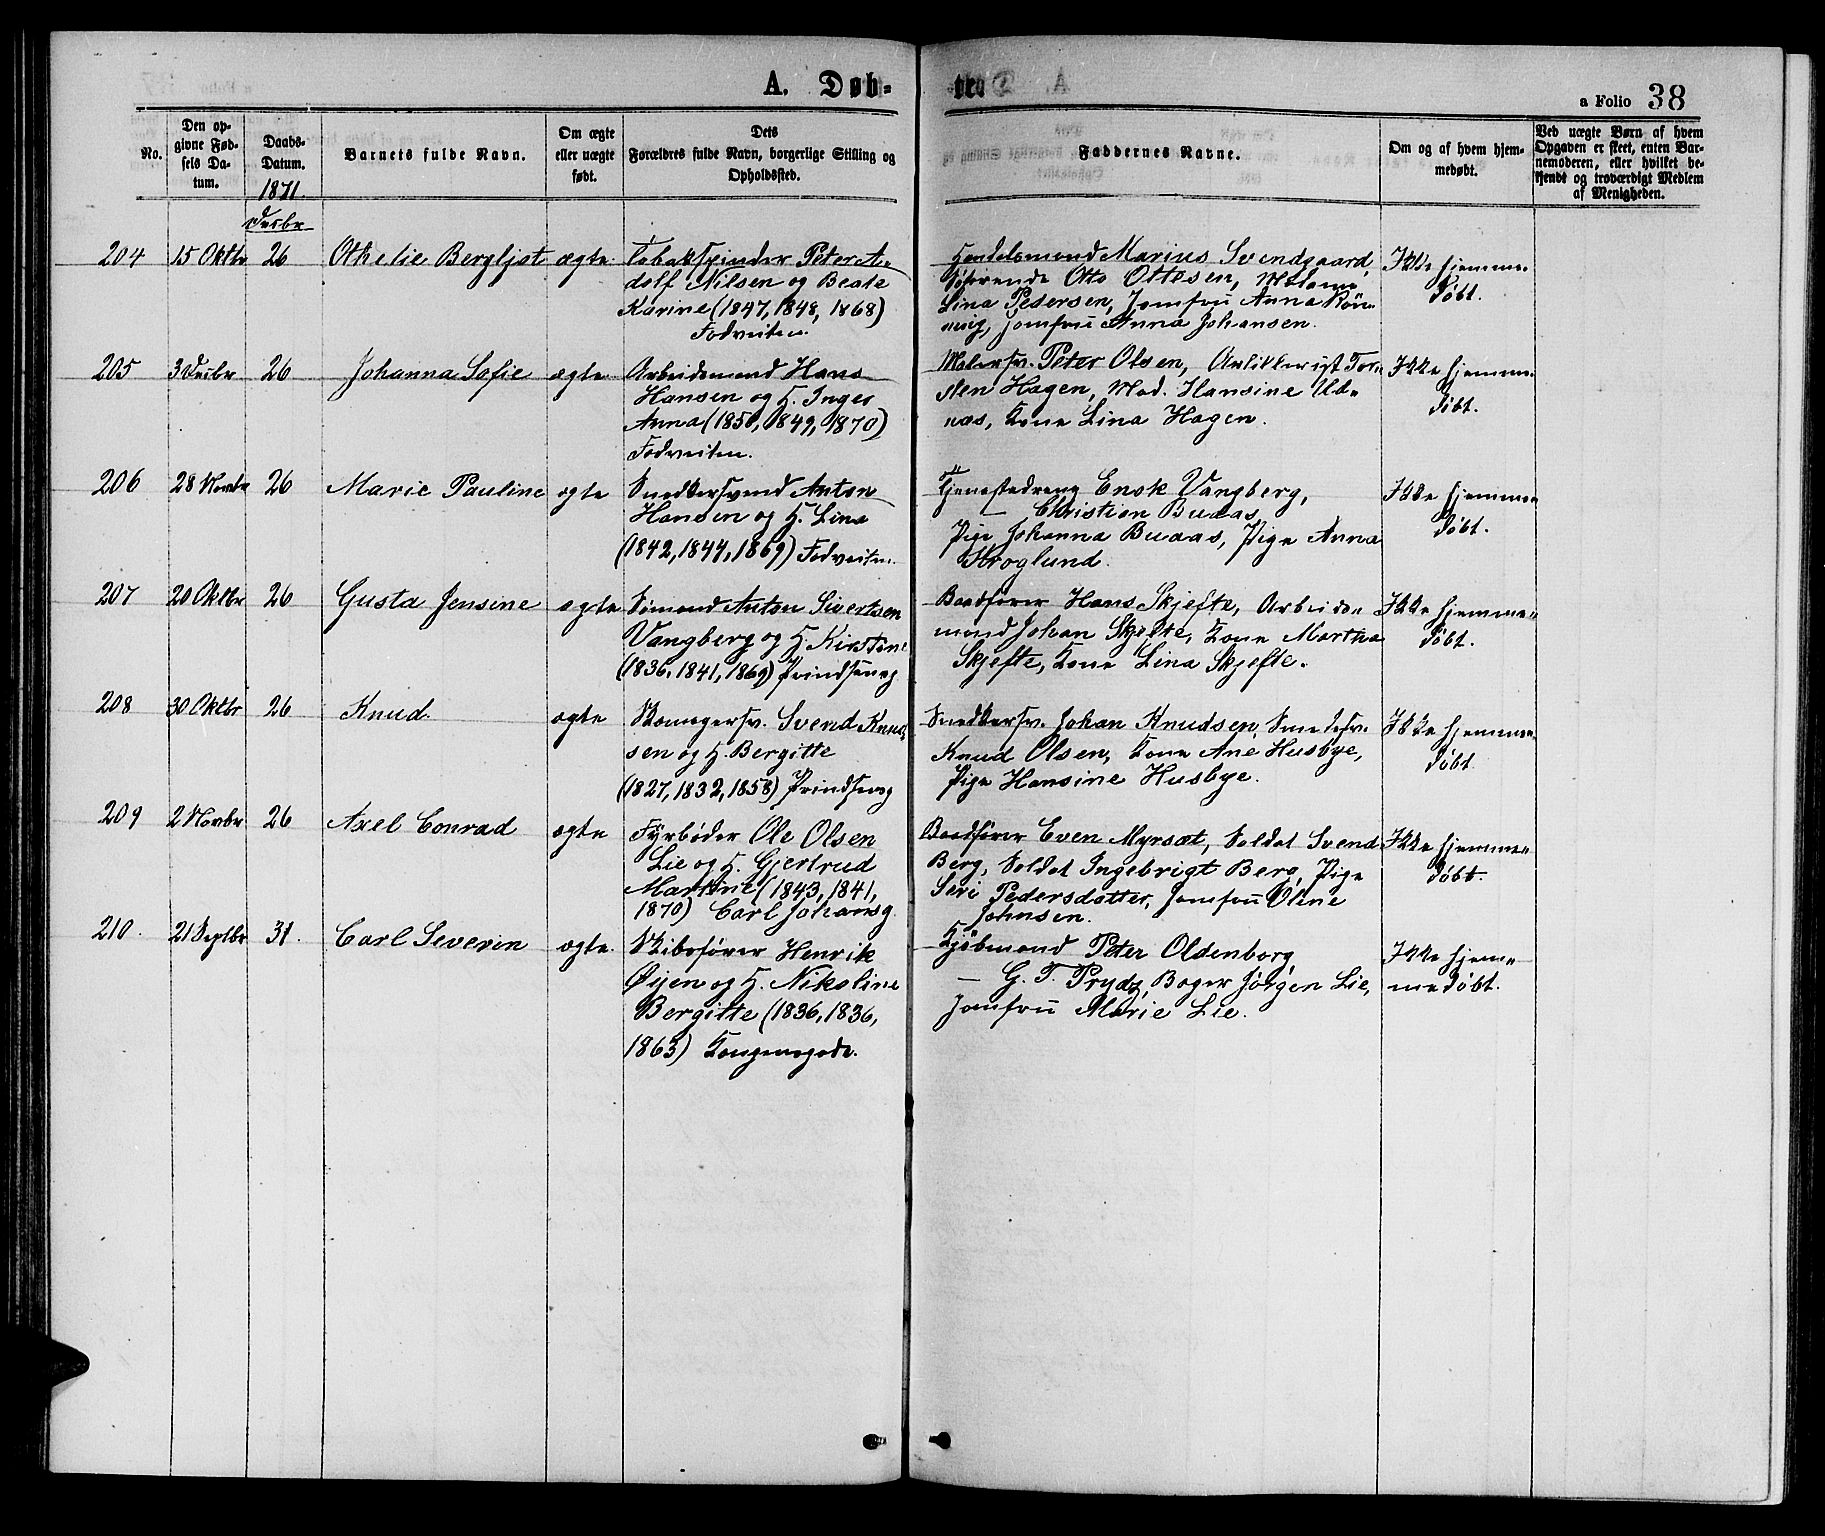 A. Døb-
te.
a Folio 38
No.
Den op-
givne Fød-
sels Da-
tum.
Daabs-
Datum.
1871.
Decbr
Barnets fulde Navn.
Om ægte
eller uægte
født.
Dets
Forældres fulde Navn, borgerlige Stilling og
Opholdssted.
Faddernes Navne.
Om og af hvem hjem-
medøbt.
Ved uægte Børn af hvem
Opgaven er skeet, enten Bar-
nemoderen, eller hvilket be-
kjendt og troværdigt Medlem
af Menigheden.
204 15 Oktbr 26 Othelie Bergljot ægte
Tobakspinder Peter A-
dolf Nilsen og Beate
Karine (1847, 1848, 1868)
Fodveiten.
Handelsmand Marius Svendgaard,
Søfarende Otto Ottesen, Madame
Lina Pedersen, Jomfru Anna Røn-
ning, Jomfru Anna Johansen.
Ikke hjemme-
døbt.
205 3 Decbr 26 Johanna Sofie ægte
Arbeidsmand Hans
Hansen og H. Inger
Anna (1850, 1849, 1870)
Fodveiten.
Malersv. Peter Olsen, Artillerist Tor-
sten Hagen, Mad. Hansine Ud-
næs, Kone Lina Hagen.
Ikke hjemme-
døbt.
206 28 Novbr 26 Marie Pauline ægte
Snedkersvend Anton
Hansen og H. Lina
(1842, 1844, 1869) Fodveiten.
Tjenestedreng Enok Vangberg,
— Christian Buaas,
Pige Johanna Buaas, Pige Anna
Kroglund.
Ikke hjemme-
døbt.
207 20 Oktbr 26 Gusta Jensine ægte
Sømand Anton Sivertsen
Vangberg og H. Kirstine
(1836, 1841, 1869) Prindsensg
Baadfører Hans Skjefte, Arbeids-
mand Johan Skjefte, Kone Martha
Skjefte, Kone Lina Skjefte.
Ikke hjemme-
døbt.
208 30 Oktbr 26 Knud. ægte
Skomagersv. Svend Knud-
sen og H. Bergitte
(1827, 1832, 1858) Prindsensg
Snedkersv. Johan Knudsen, Smedesv.
Knud Olsen, Kone Ane Husbye,
Pige Hansine Husbye.
Ikke hjemme-
døbt
209 2 Novbr 26 Axel Conrad ægte
Fyrbøder Ole Olsen
Lie og H. Gjertrud
Martine (1843, 1841,
1870) Carl Johansg.
Baadfører Even Myrsæt, Soldat Svend
Berg, Soldat Ingebrigt Berg, Pige
Seri Pedersdatter, Jomfru Oline
Johnsen.
Ikke hjemme-
døbt.
210. 21 Septbr 31. Carl Severin ægte
Skibsfører Henrik
Øijen og H. Nikoline
Bergitte (1836, 1836,
1863) Kongensgade.
Kjøbmand Peter Oldenborg,
— G. F. Prydz, Bager Jørgen Lie,
Jomfru Marie Lie.
Ikke hjem-
medøbt.